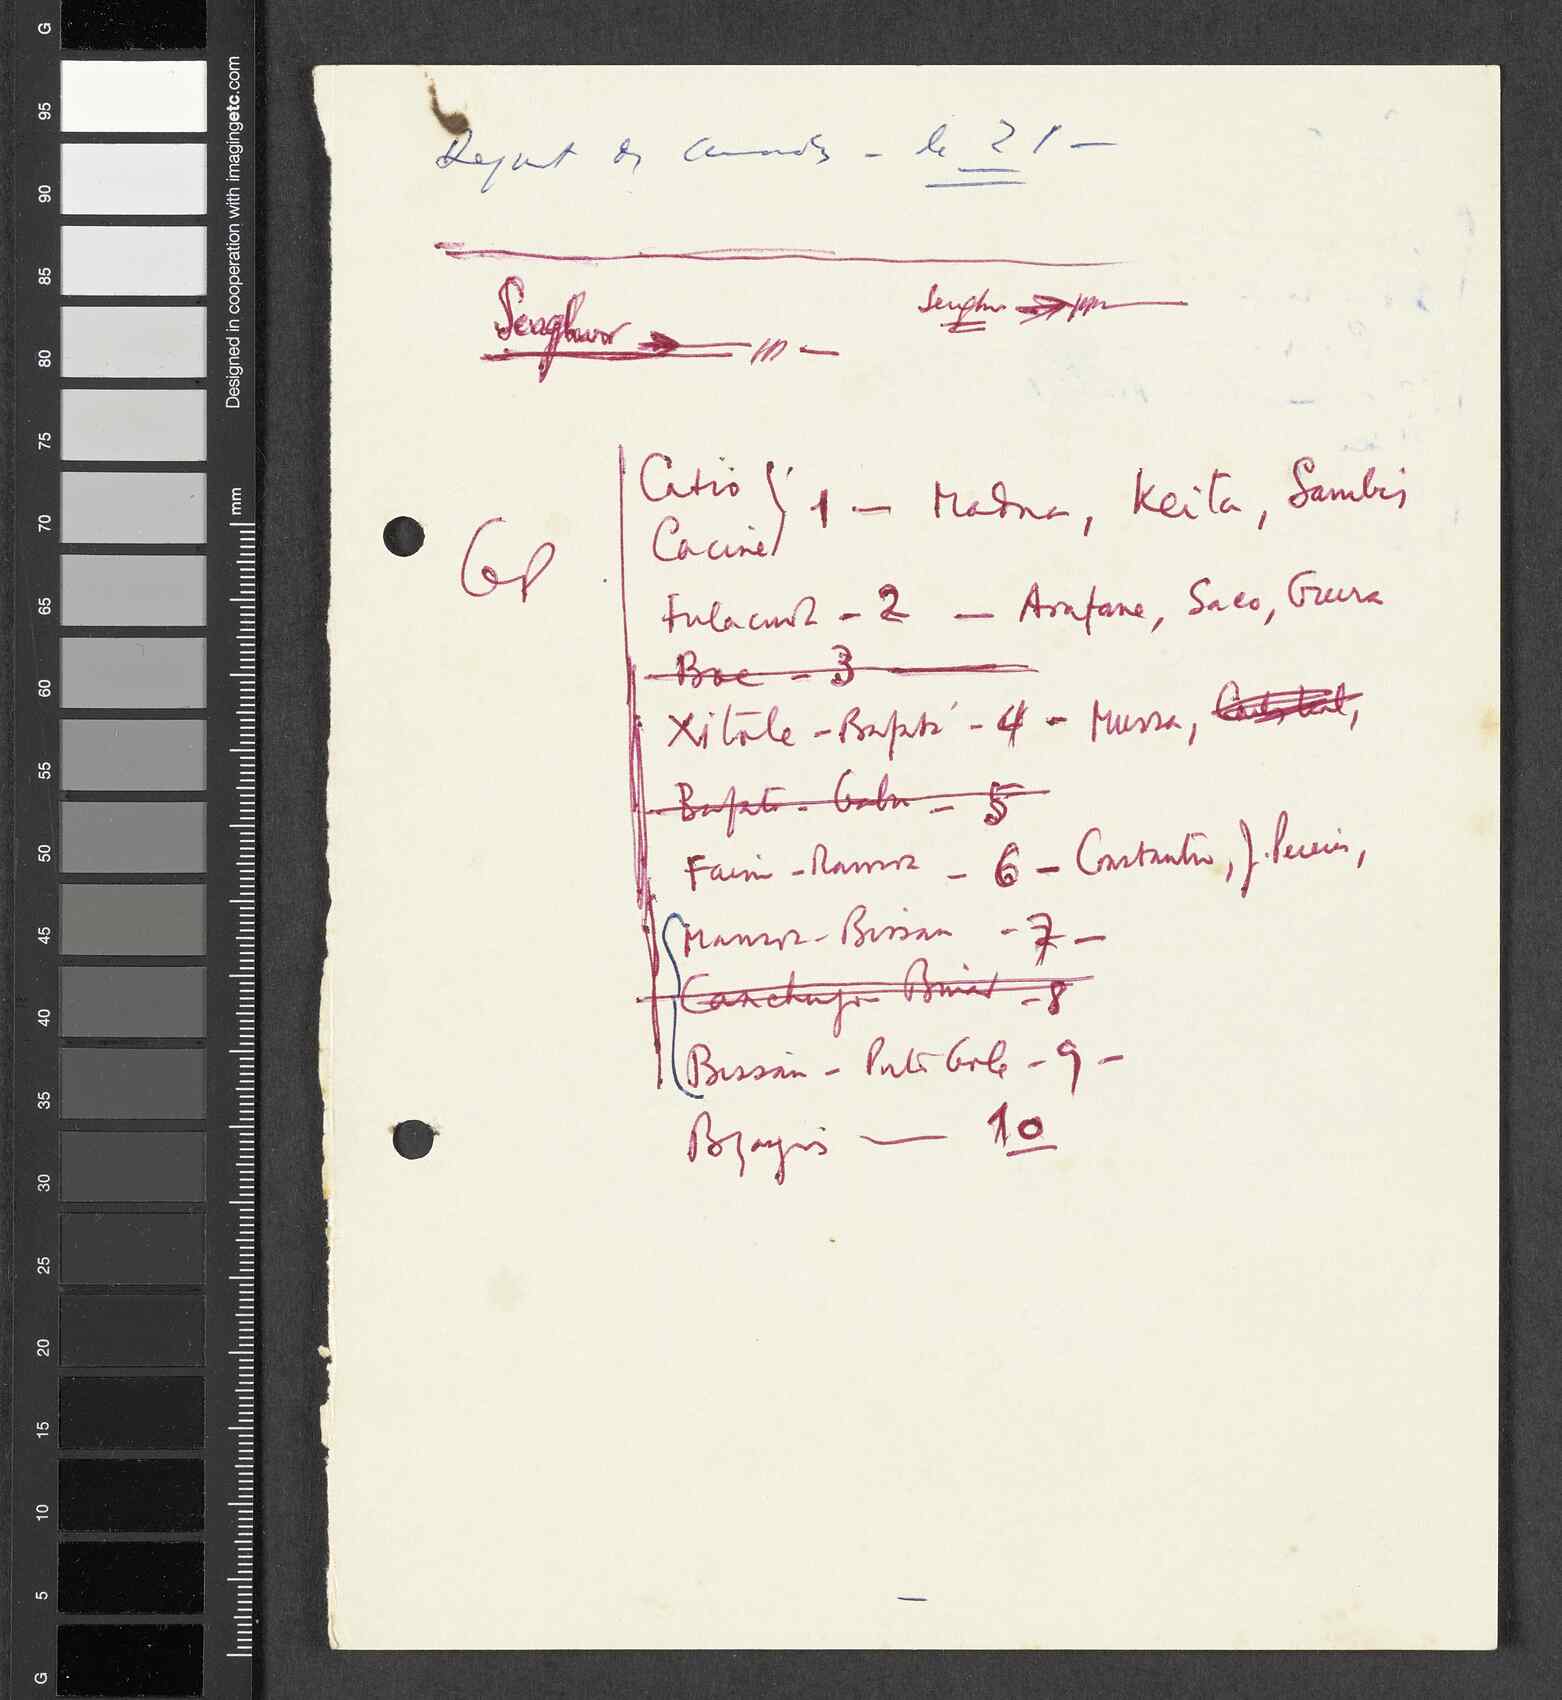 Départ des camarades - le 21 -
Senghor → /// -
Senghor → ///
Catió
Cacine } 1 - Madna, Keita, Sambis
Gp
Fulacunda - 2 - Arafane, Saco, Guerra
Boe - 3
Xitole - Bafatá - 4 - Mussa,
Bafatá - Gabu - 5
Farim - Mansoa - 6 - Constantino, J. Pereira,
Mansoa - Bissau - 7 -
Canchungo - - 8
Bissau - Porto Gole - 9 -
Bijagós — 10
G
95
90
85
80
75
70
65
60
55
50
45
40
35
30
25
20
15
10
5
G
Designed in cooperation with imagingetc.com
mm